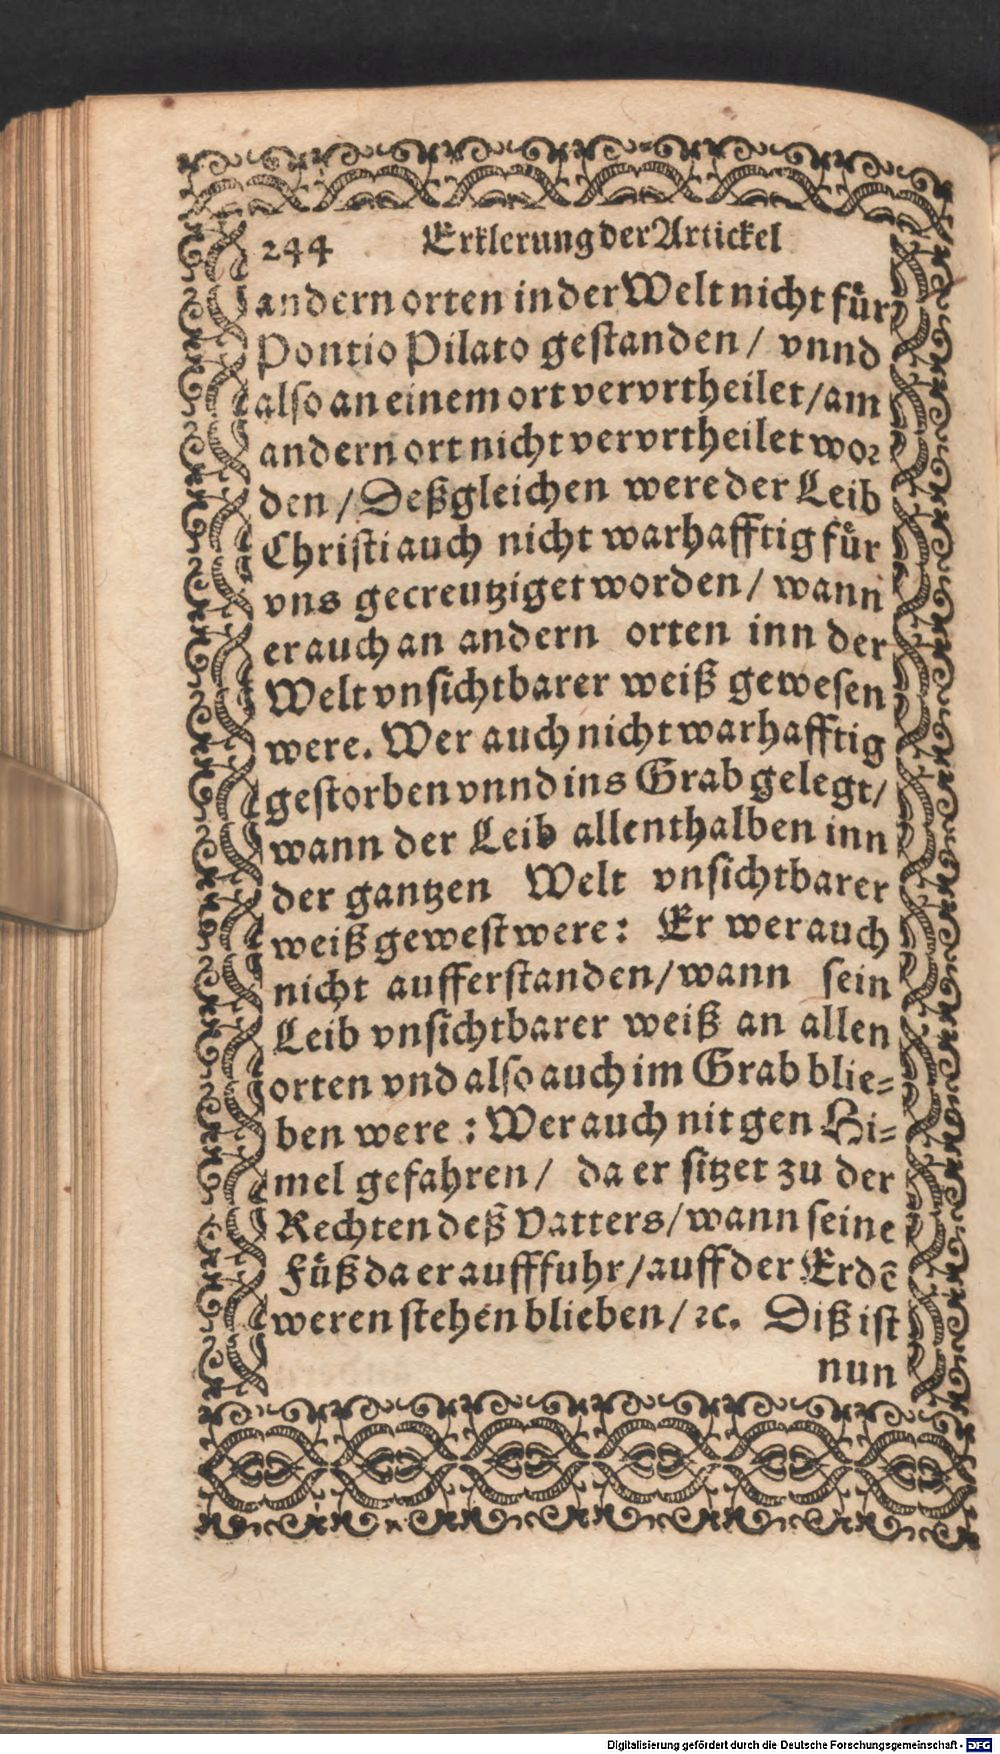 244 Erklerung der Artickel
andern orten in der Welt nicht fuͤr
Pontio Pilato geſtanden / vnnd
alſo an einem ort vervrtheilet / am
andern ort nicht vervrtheilet wor
den / Deßgleichen were der Leib
Chriſti auch nicht warhafftig fuͤr
vns gecreutziget worden / wann
er auch an andern orten inn der
Welt vnſichtbarer weiß geweſen
were. Wer auch nicht warhafftig
geſtorben vnnd ins Grab gelegt /
wann der Leib allenthalben inn
der gantzen Welt vnſichtbarer
weiß geweſt were: Er wer auch
nicht aufferſtanden / wann ſein
Leib vnſichtbarer weiß an allen
orten vnd alſo auch im Grab blie⸗
ben were : Wer auch nit gen Hi⸗
mel gefahren / da er ſitzet zu der
Rechten deß Vatters / wann ſeine
Fuͤß da er aufffuhr / auff der Erdē
weren ſtehen blieben / ꝛc. Diß iſt
nun
Digitalisierung gefördert durch die Deutsche Forschungsgemeinschaft - DFG